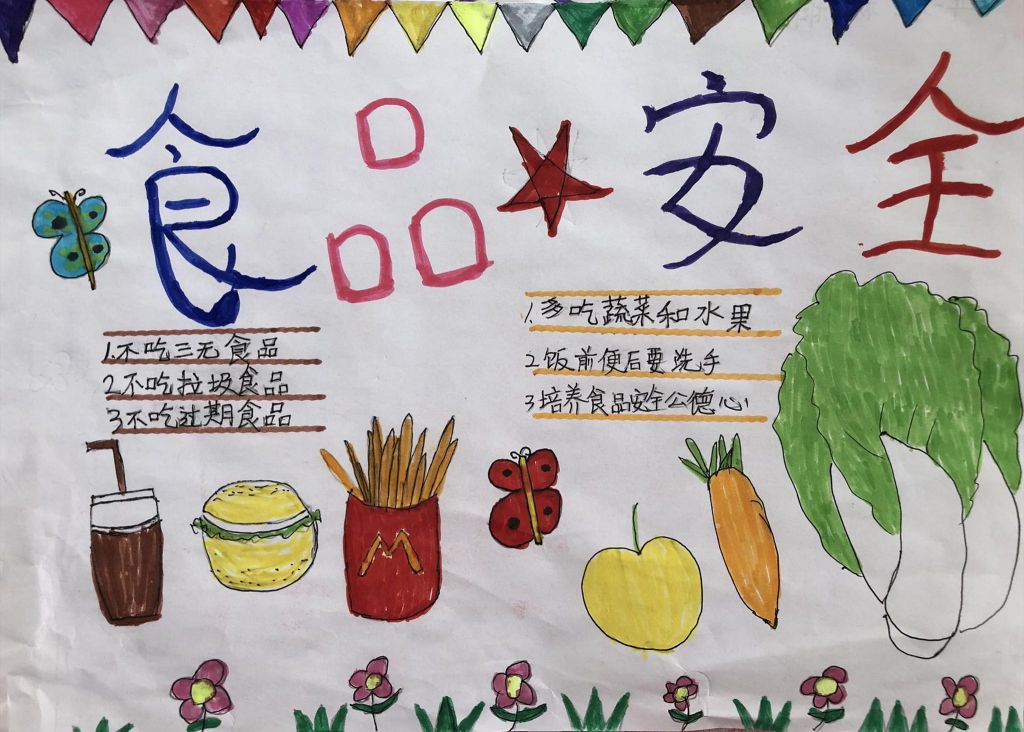 食品安全
1.不吃三无食品
2.不吃垃圾食品
3.不吃过期食品
1.多吃蔬菜和水果
2.饭前便后要洗手
3.培养食品安全公德心
M